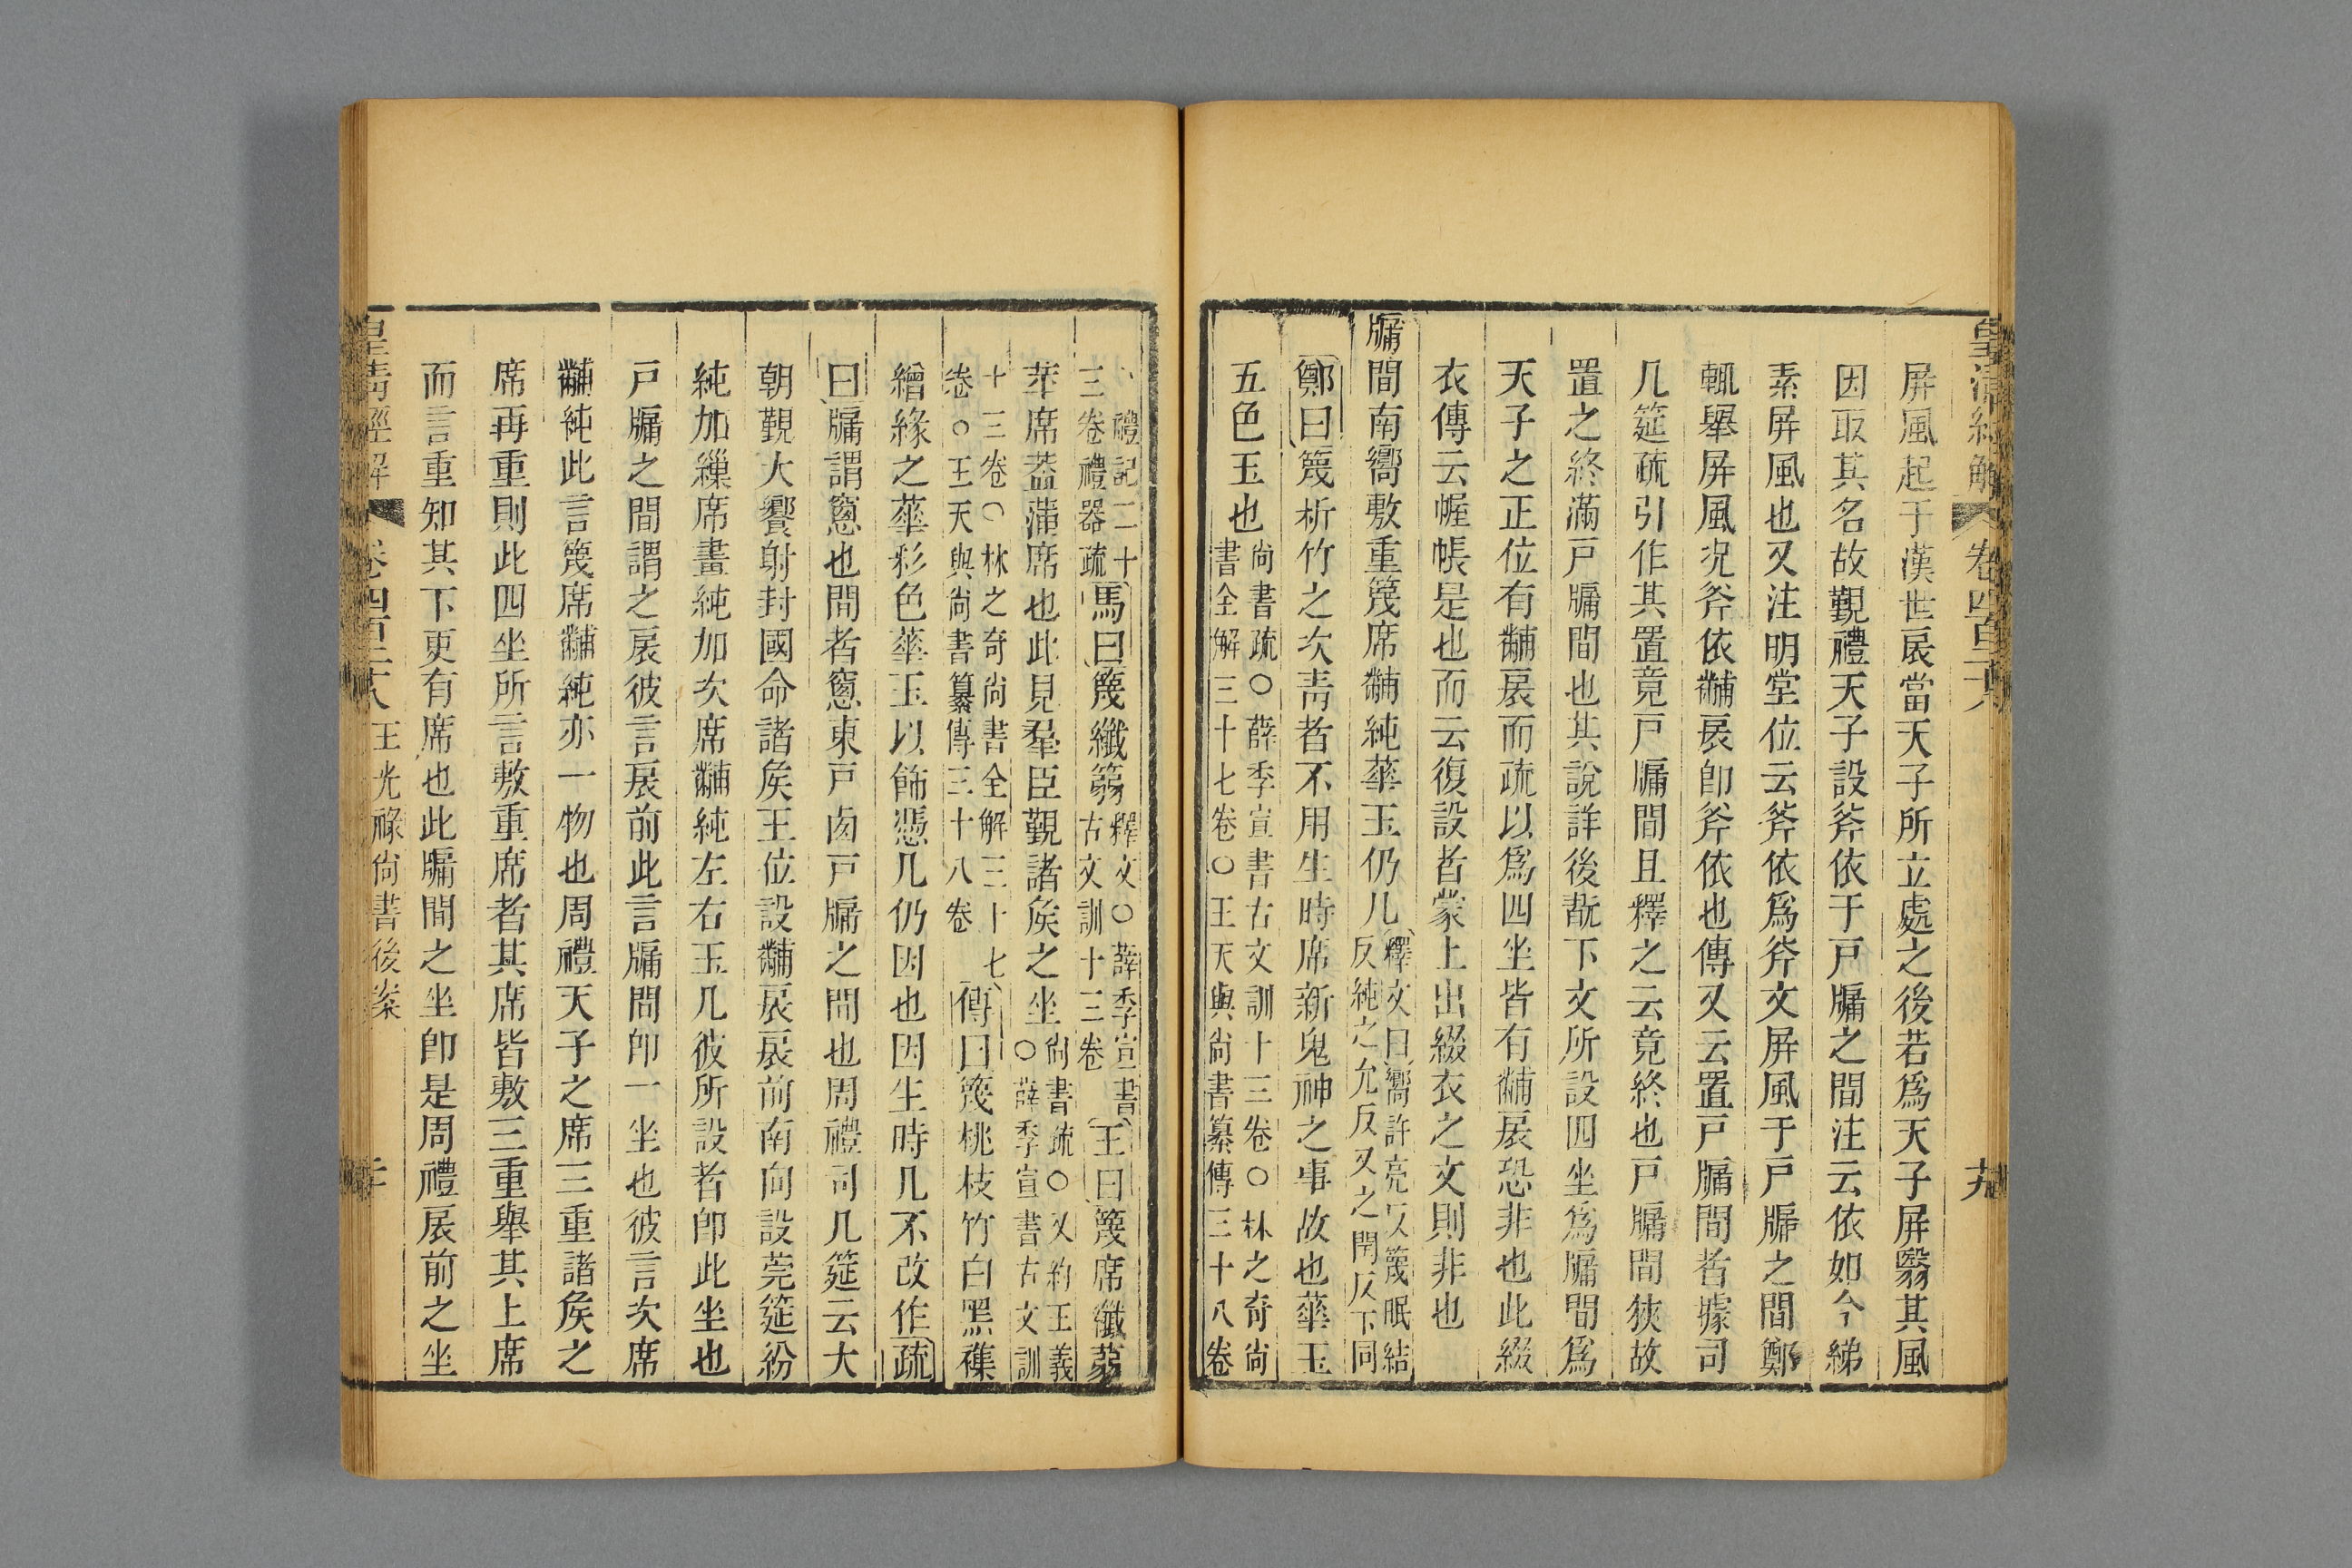 屏風起于漢世扆當天子所立處之後若爲天子屏翳其風
因取其名故覲禮天子設斧依于戸牖之間注云依如今綈
素屏風也又注明堂位云斧依爲斧文屏風于戸牖之間鄭
輒舉屏風况斧依黼扆卽斧依也傳又云置戸牖間者據司
几筵疏引作其置竟戸牖間且釋之云竟終也戸牖間狹故
置之終滿戸牖間也其說詳後𣤶下文所設四坐爲牖間爲
天子之正位有黼扆而疏以爲四坐皆有黼扆恐非也此綴
衣傳云幄帳是也而云復設者蒙上出綴衣之文則非也
牖間南嚮敷重篾席黼純華玉仍几
釋文曰嚮許亮反篾眠結
反純之允反又之閏反下同
鄭曰篾析竹之次靑者不用生時席新鬼神之事故也華玉
五色玉也
尙書疏○薛季宣書古文訓十三卷○林之奇尙
書全解三十七卷○王天與尙書纂傳三十八卷
皇淸經解 卷四百二十八
禮記二十
三卷禮器疏
馬曰篾纖蒻
釋文○薛季宣書
古文訓十三卷
王曰篾席纖蒻
苹席葢蒲席也此見羣臣覲諸矦之坐
尙書疏○又約王義
○薛季宣書古文訓
十三卷○林之奇尙書全解三十七
卷○王天與尙書纂傳三十八卷
傳曰篾桃枝竹白黑襍
繒緣之華彩色華玉以飾憑几仍因也因生時几不改作疏
曰牖謂窻也間者窻東戸西戸牖之間也周禮司几筵云大
朝覲大饗射封國命諸矦王位設黼扆扆前南向設莞筵紛
純加繅席畫純加次席黼純左右玉几彼所設者卽此坐也
戸牖之間謂之扆彼言扆前此言牖間卽一坐也彼言次席
黼純此言篾席黼純亦一物也周禮天子之席三重諸矦之
席再重則此四坐所言敷重席者其席皆敷三重舉其上席
而言重知其下更有席也此牖間之坐卽是周禮扆前之坐
皇淸經解 卷四百二十八 王光祿尙書後案